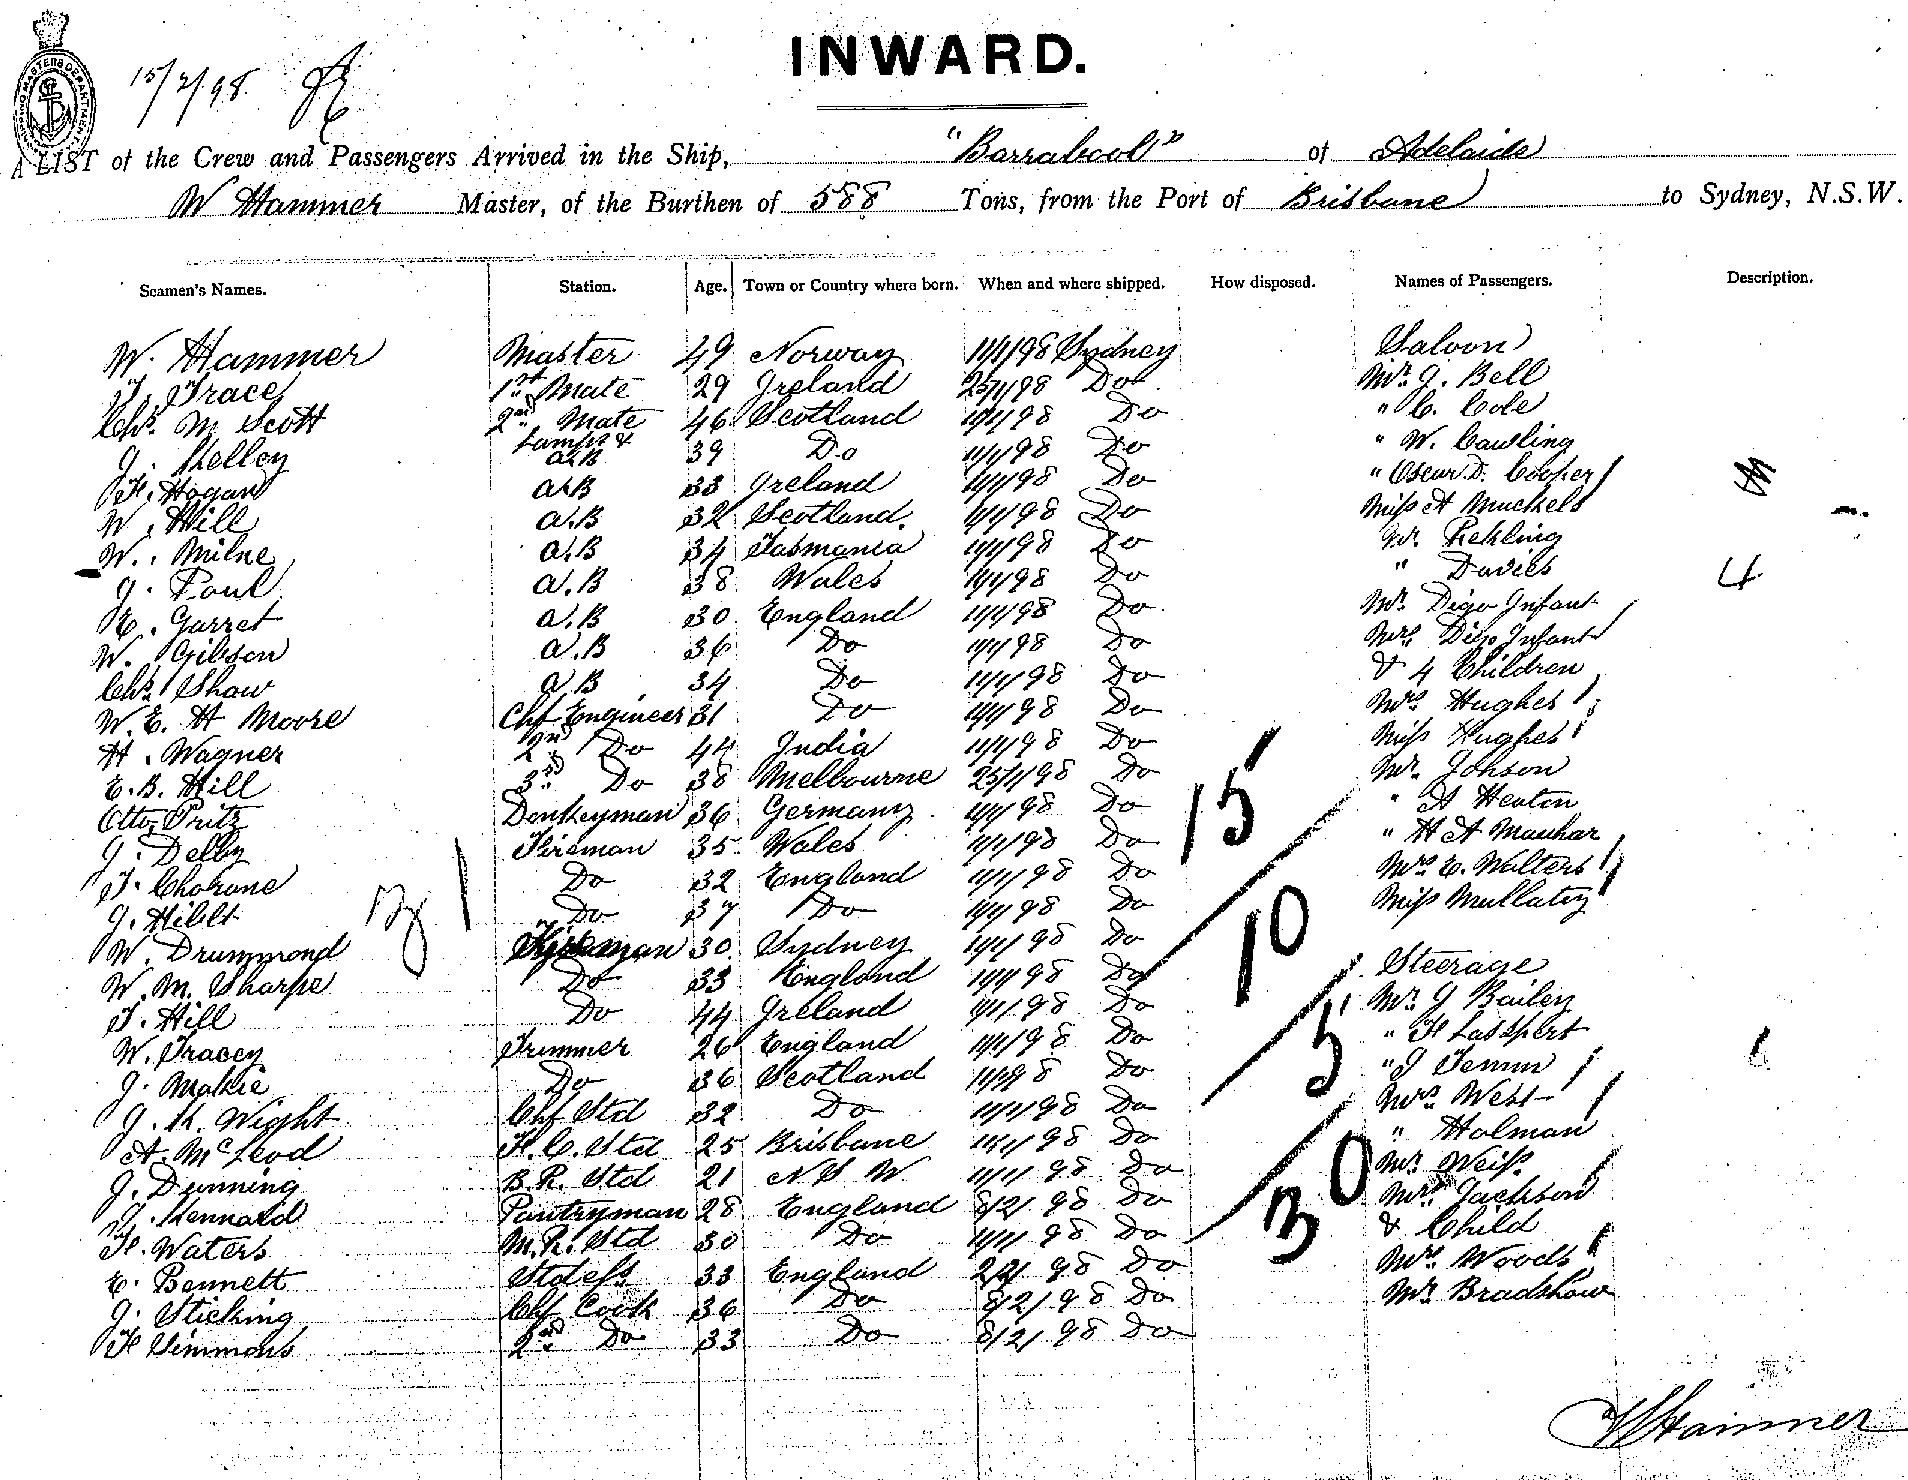 INWARD.
15/2/98
A LIST of the Crew and Passengers Arrived in the Ship, "Barrabool" of Adelaide
W Hammer Master, of the Burthen of 588 Tons, from the Port of Brisbane to Sydney, N.S.W.
Seamen's Names. Station. Age. Town or Country where born. When and where shipped. How disposed. Names of Passengers. Description.
W. Hammer Master 49 Norway 11/1/98 Sydney Saloon
T. Trace 1st Mate 29 Ireland 25/1/98 Do Mr. J. Bell
Chs. M Scott 2nd Mate 46 Scotland 11/1/98 Do " C. Cole
J. Kelley Lamps & A.B 39 Do 11/1/98 Do " W. Cawling
H. Hogan A.B 33 Ireland 11/1/98 Do " Oscar D. Cooper
W. Hill A.B 32 Scotland. 11/1/98 Do Miss A Muckels
W. Milne A.B 34 Tasmania 11/1/98 Do Mr. Rekling
J. Paul A.B 38 Wales 11/1/98 Do " Davies 4
E. Garret A.B 30 England 11/1/98 Do Mr. Infant
W. Gibson A.B 36 Do 11/1/98 Do Mrs. Infant
Chs. Shaw A.B 34 Do 11/1/98 Do & 4 Children
W. E. H Moore Chf Engineer 31 Do 11/1/98 Do Mrs. Hughes
H. Wagner 2nd Do 44 India 11/1/98 Do Miss Hughes
E. B. Hill 3rd Do 38 Melbourne 25/1/98 Do Mr. Johson
Otto Pritz Donkeyman 36 Germany 11/1/98 Do " A Heaton
J. Delby Fireman 35 Wales 11/1/98 Do 15 " H A Maushar
T. Chorane Do 32 England 11/1/98 Do Mrs. E. Walters
J. Hiblt Do 37 Do 11/1/98 Do Miss Mullaty
W. Drummond Fireman 30 Sydney 11/1/98 Do 10
W. M. Sharpe Do 33 England 11/1/98 Do Steerage
T. Hill Do 44 Ireland 11/1/98 Do Mr. J Bailey
W. Tracey Trimmer 26 England 11/1/98 Do 5 " H Lasspert
J. Makie Do 36 Scotland 11/1/98 Do " J Temm
J. K. Wight Chf Std 32 Do 11/1/98 Do Mrs. West
A. McLeod F. C. Std 25 Brisbane 11/1/98 Do " Holman
J. Dunning B. R. Std 21 N S W. 11/1/98 Do 30 Mr. Weiss.
J. Kennard Pantryman 28 England 8/2/98 Do Mrs. Jackson
H. Waters M. R. Std 30 Do 11/1/98 Do & Child
E. Bennett Stdess 33 England 98 Do Mrs. Woods
J. Sticking Chf Cook 36 Do 8/2/98 Do Mr. Bradshaw
H Simmons 2nd Do 33 Do 8/2/98 Do
W Hammer